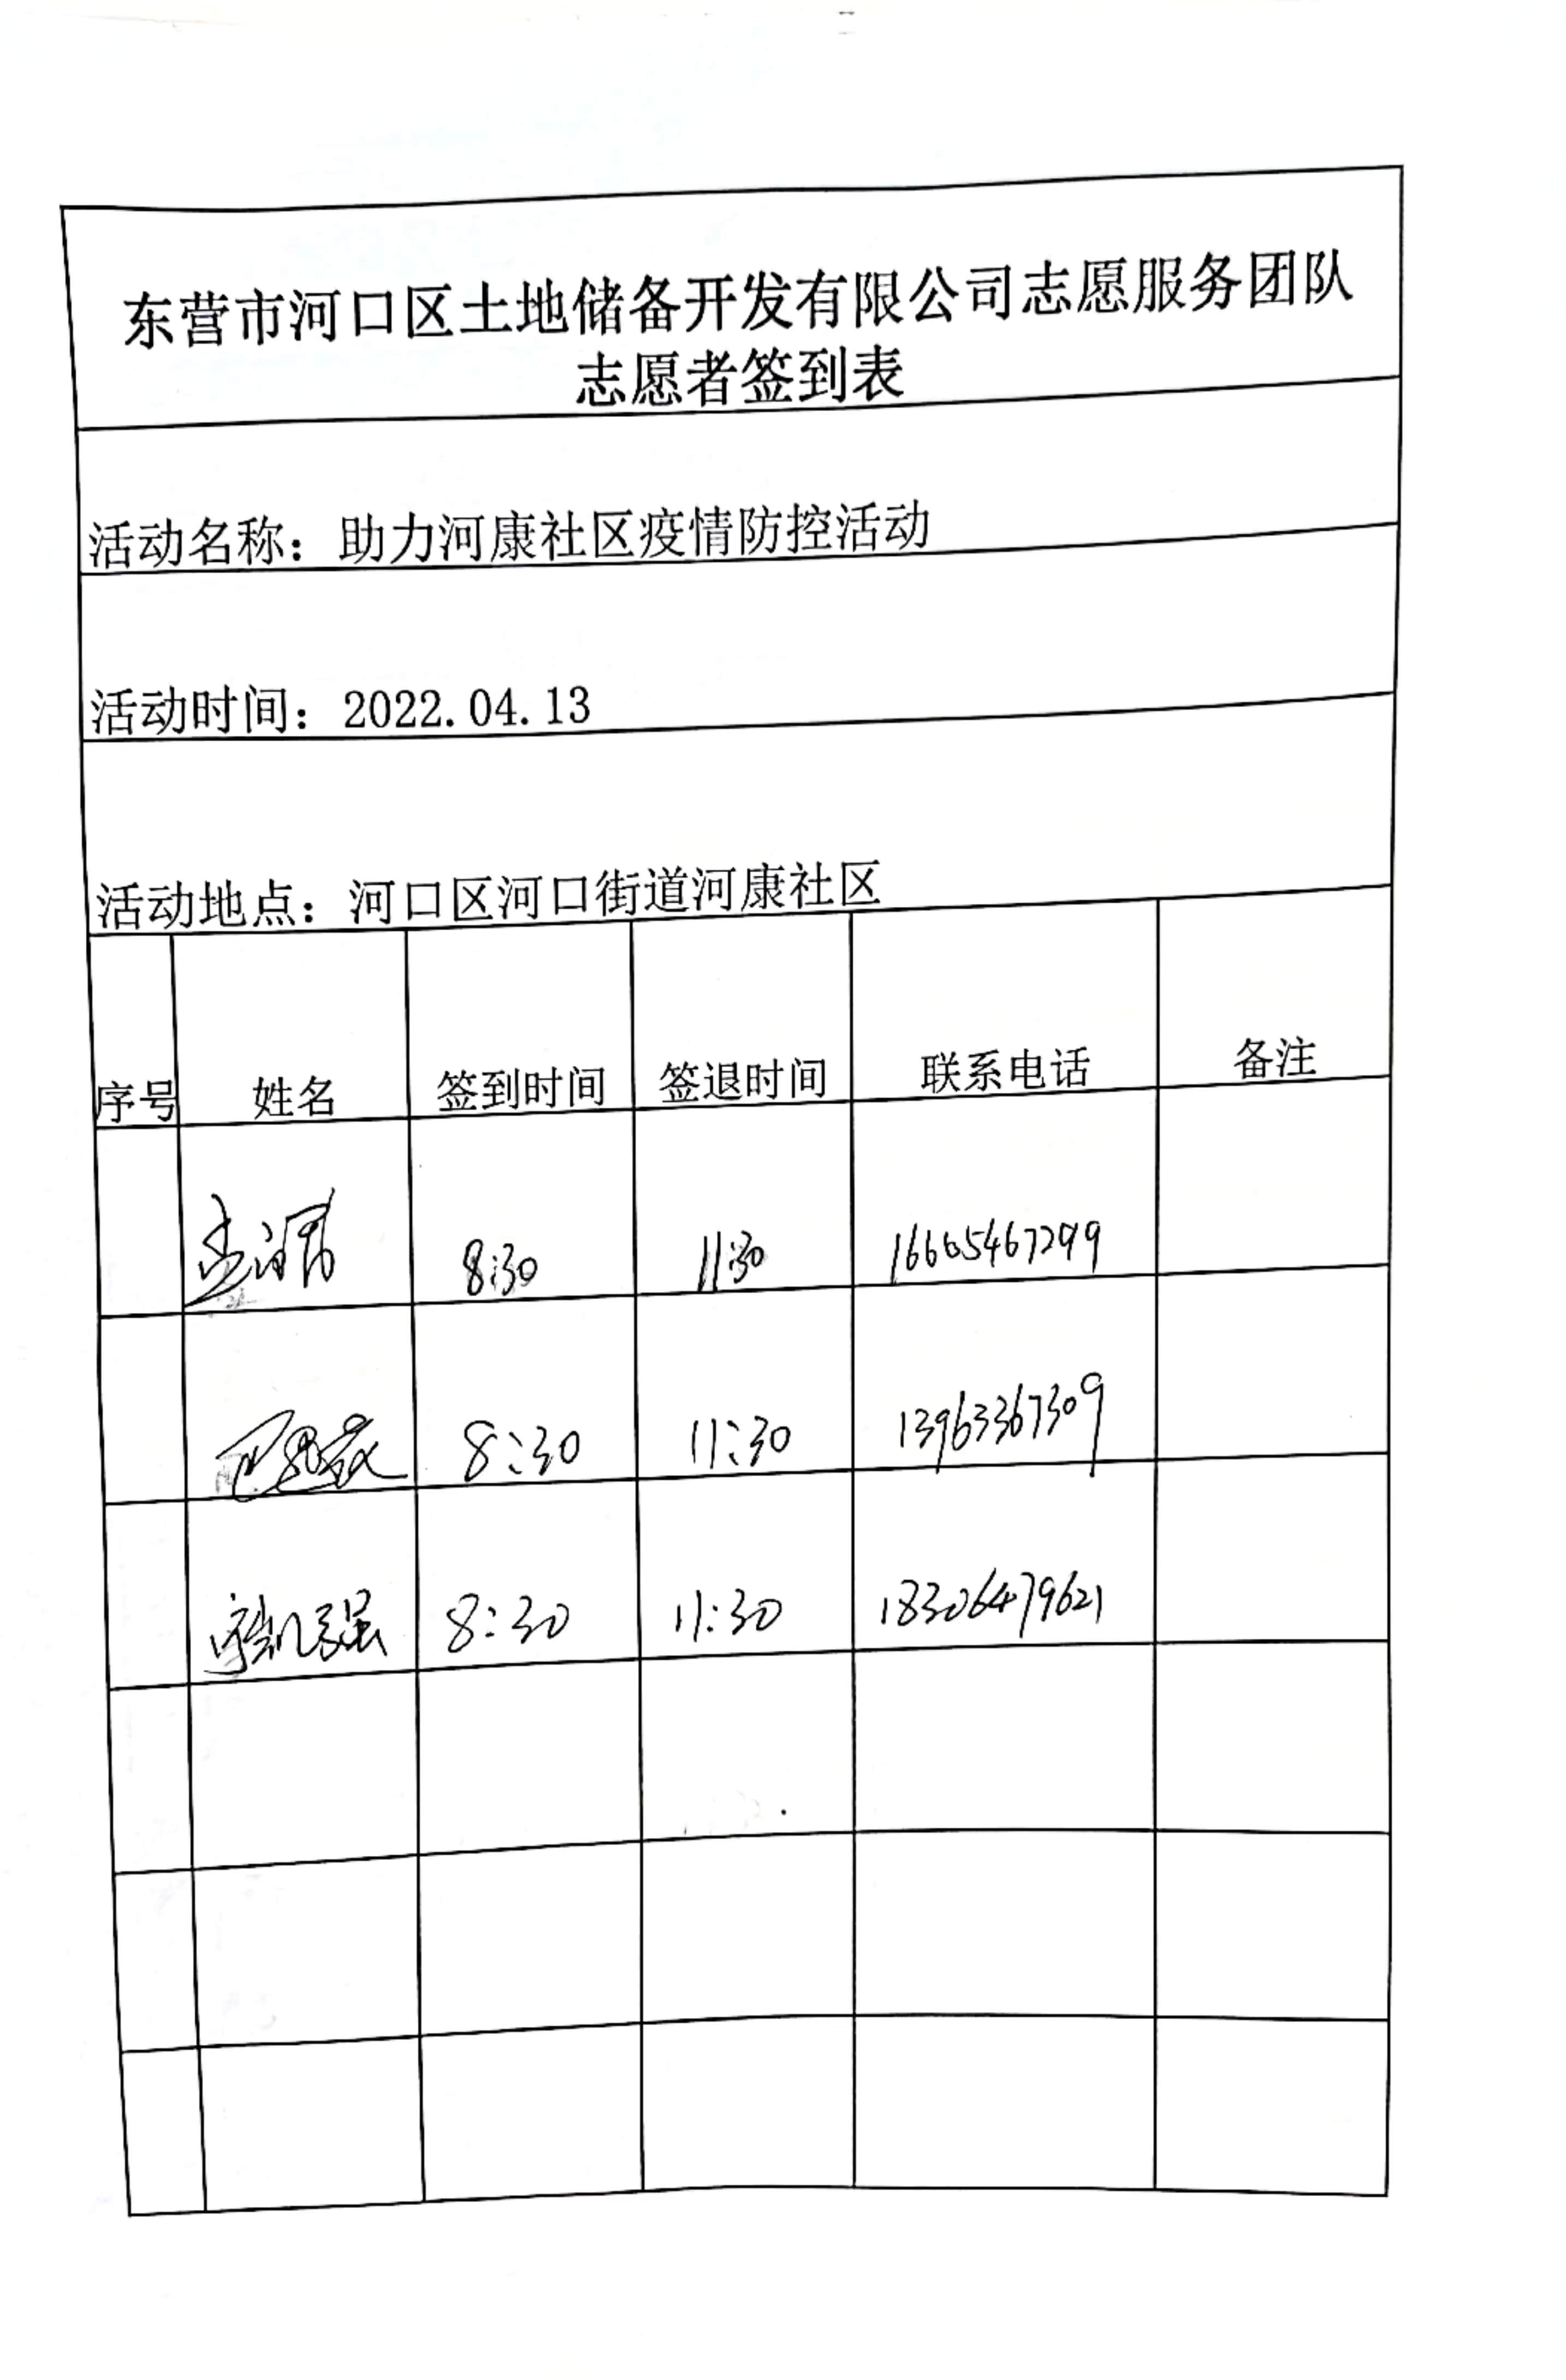 东营市河口区土地储备开发有限公司志愿服务团队
志愿者签到表
活动名称：助力河康社区疫情防控活动
活动时间：2022.04.13
活动地点：河口区河口街道河康社区
序号 姓名 签到时间 签退时间 联系电话 备注
8:30 11:30 16665467299
8:30 11:30 13963367309
8:30 11:30 18306479621